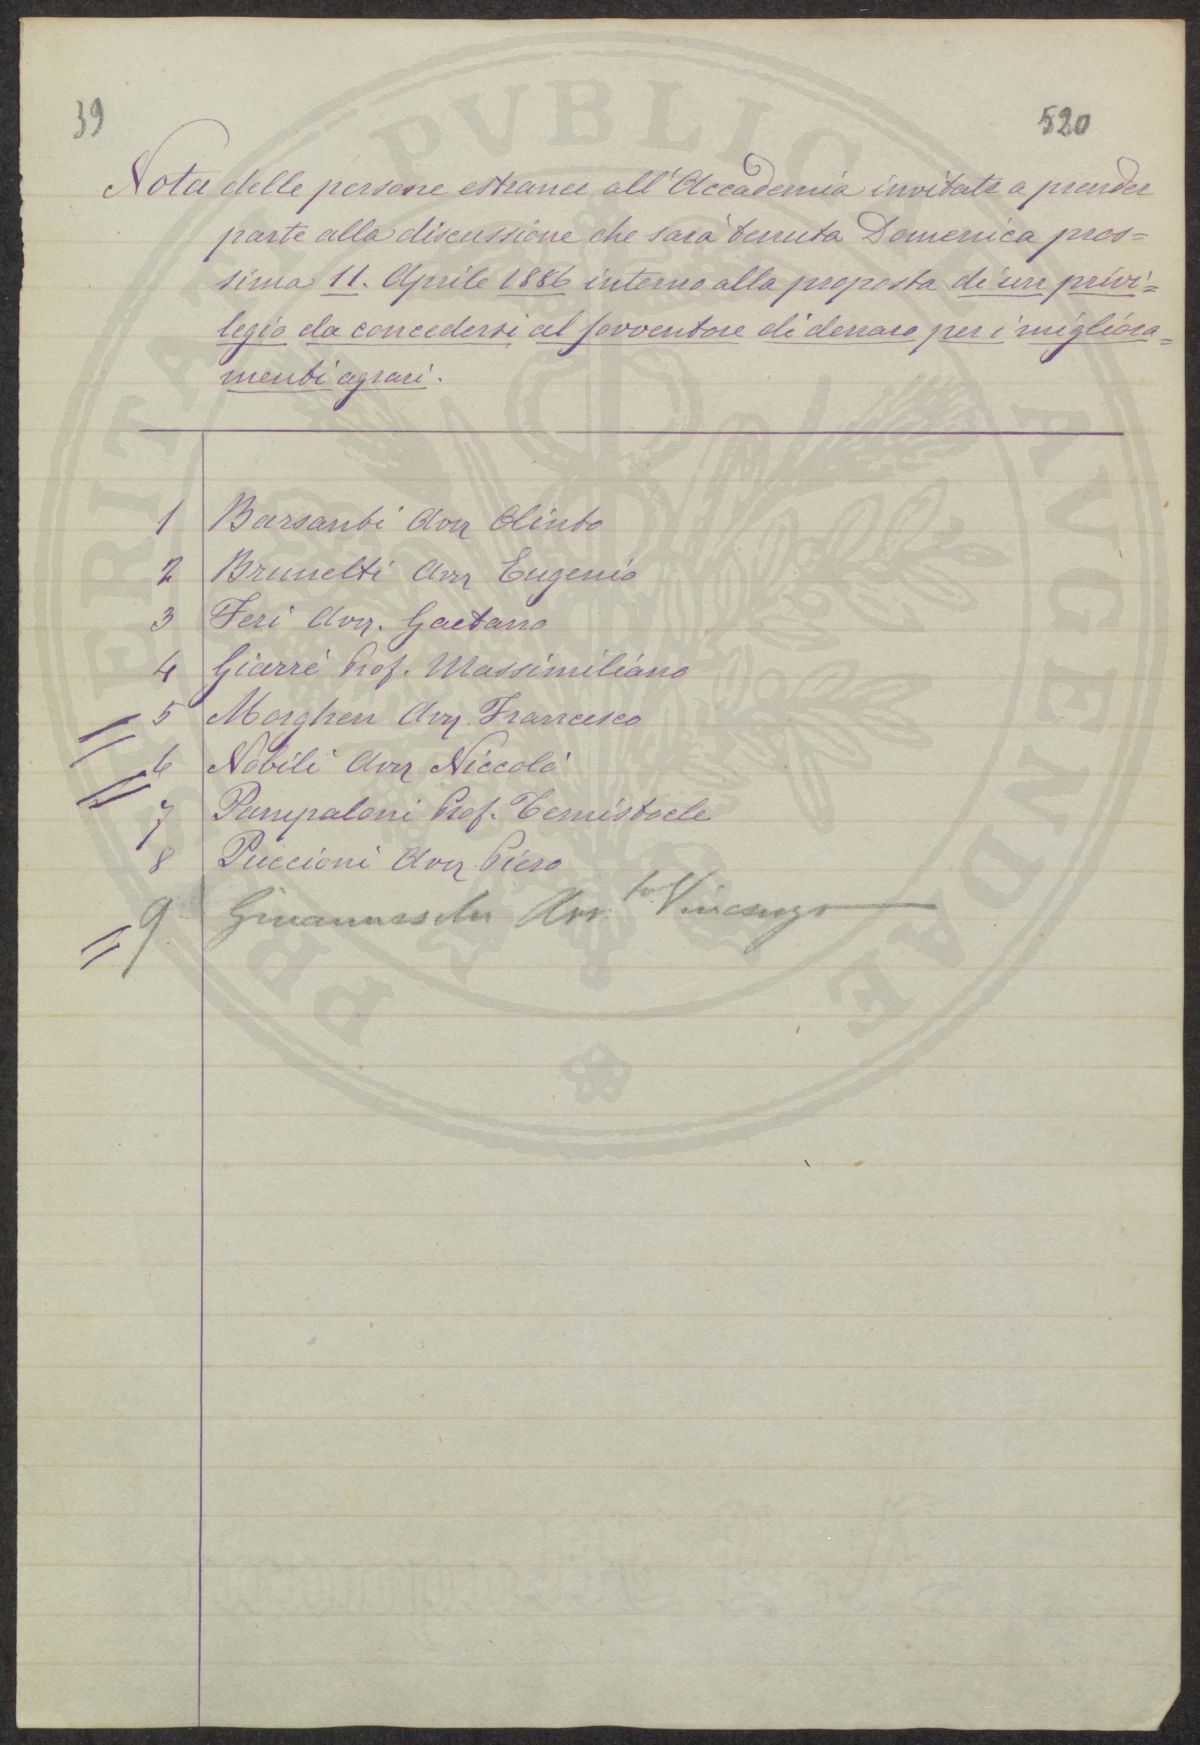 39
520
Nota delle persone estranee all'Accademia invitate a prender
parte alla discussione che sarà tenuta Domenica pros=
sima 11. Aprile 1886 intorno alla proposta di un privi=
legio da concedersi al sovventore di denaro per i migliora=
menti agrari.
1 Barsanti Avv Olinto
2 Brunetti Avv Eugenio
3 Feri Avv. Gaetano
4 Giarrè Prof. Massimiliano
5 Morghen Avv. Francesco
6 Nobili Avv Niccolò
7 Pampaloni Prof. Temistocle
8 Puccioni Avv Piero
9 Avv.to Vincenzo
PROSPERITATI PVBLICAE AVGENDAE